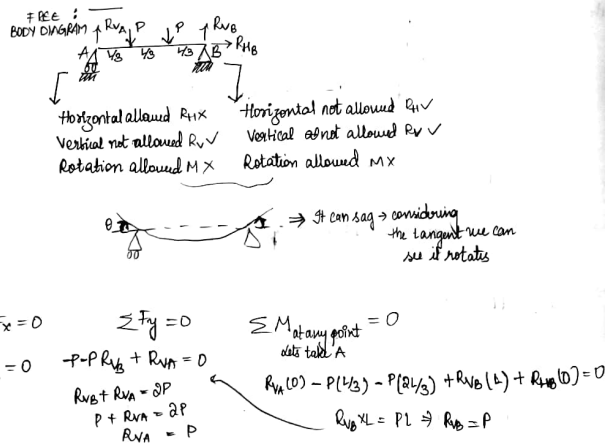 FREE :
BODY DIAGRAM
RVA P P RVB
A L/3 L/3 L/3 B RHB
Horizontal allowed RH X
Vertical not allowed RV ✓
Rotation allowed M X
Horizontal not allowed RH ✓
Vertical not allowed RV ✓
Rotation allowed M X
θ
⇒ It can sag → considering
the tangent we can
see it rotates
Fx = 0
= 0
ΣFy = 0
-P-P RVB + RVA = 0
RVB + RVA = 2P
P + RVA = 2P
RVA = P
ΣM at any point = 0
lets take A
RVA(0) - P(L/3) - P(2L/3) + RVB(L) + RHB(0) = 0
RVB XL = PL ⇒ RVB = P